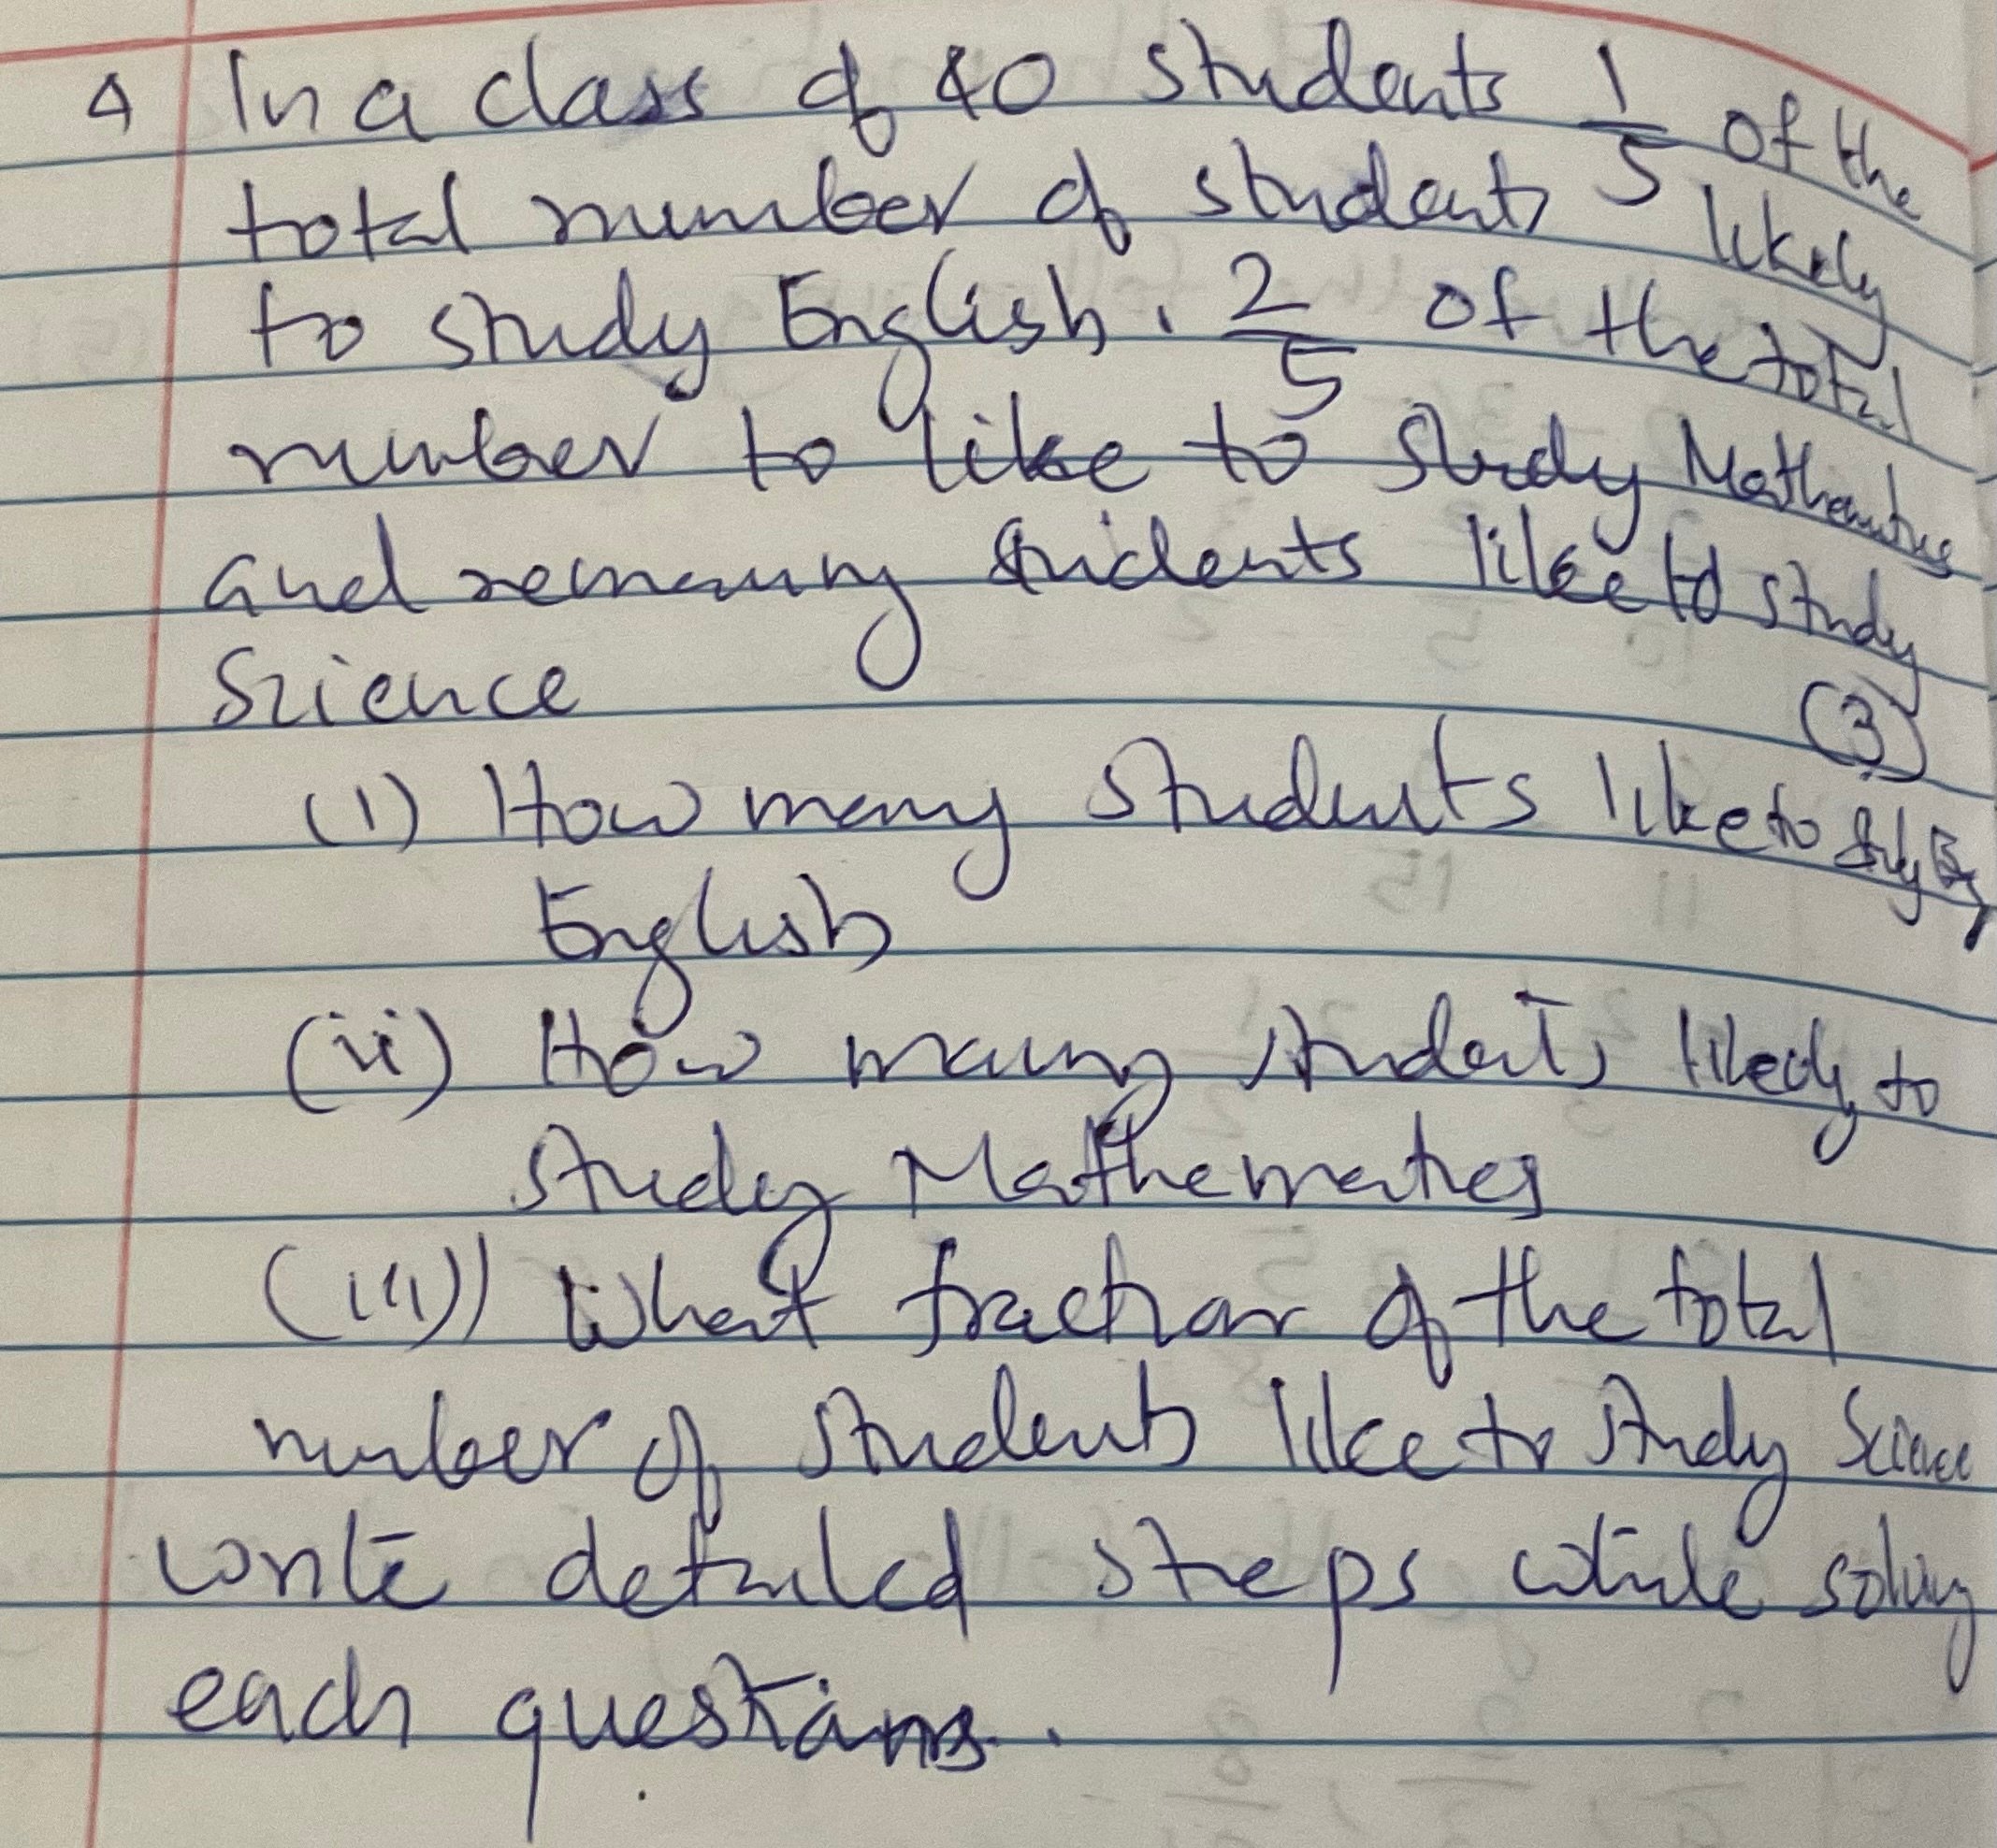 4 In a class of 40 students 1/5 of the
total number of students likely
to study English. 2/5 of the total
number to like to study Mathematics
and remaining students like to study
Science (3)
(i) How many students like to study
English
(ii) How many students likely to
study Mathematics
(iii) What fraction of the total
number of students like to study Science
write detailed steps while solving
each questions.